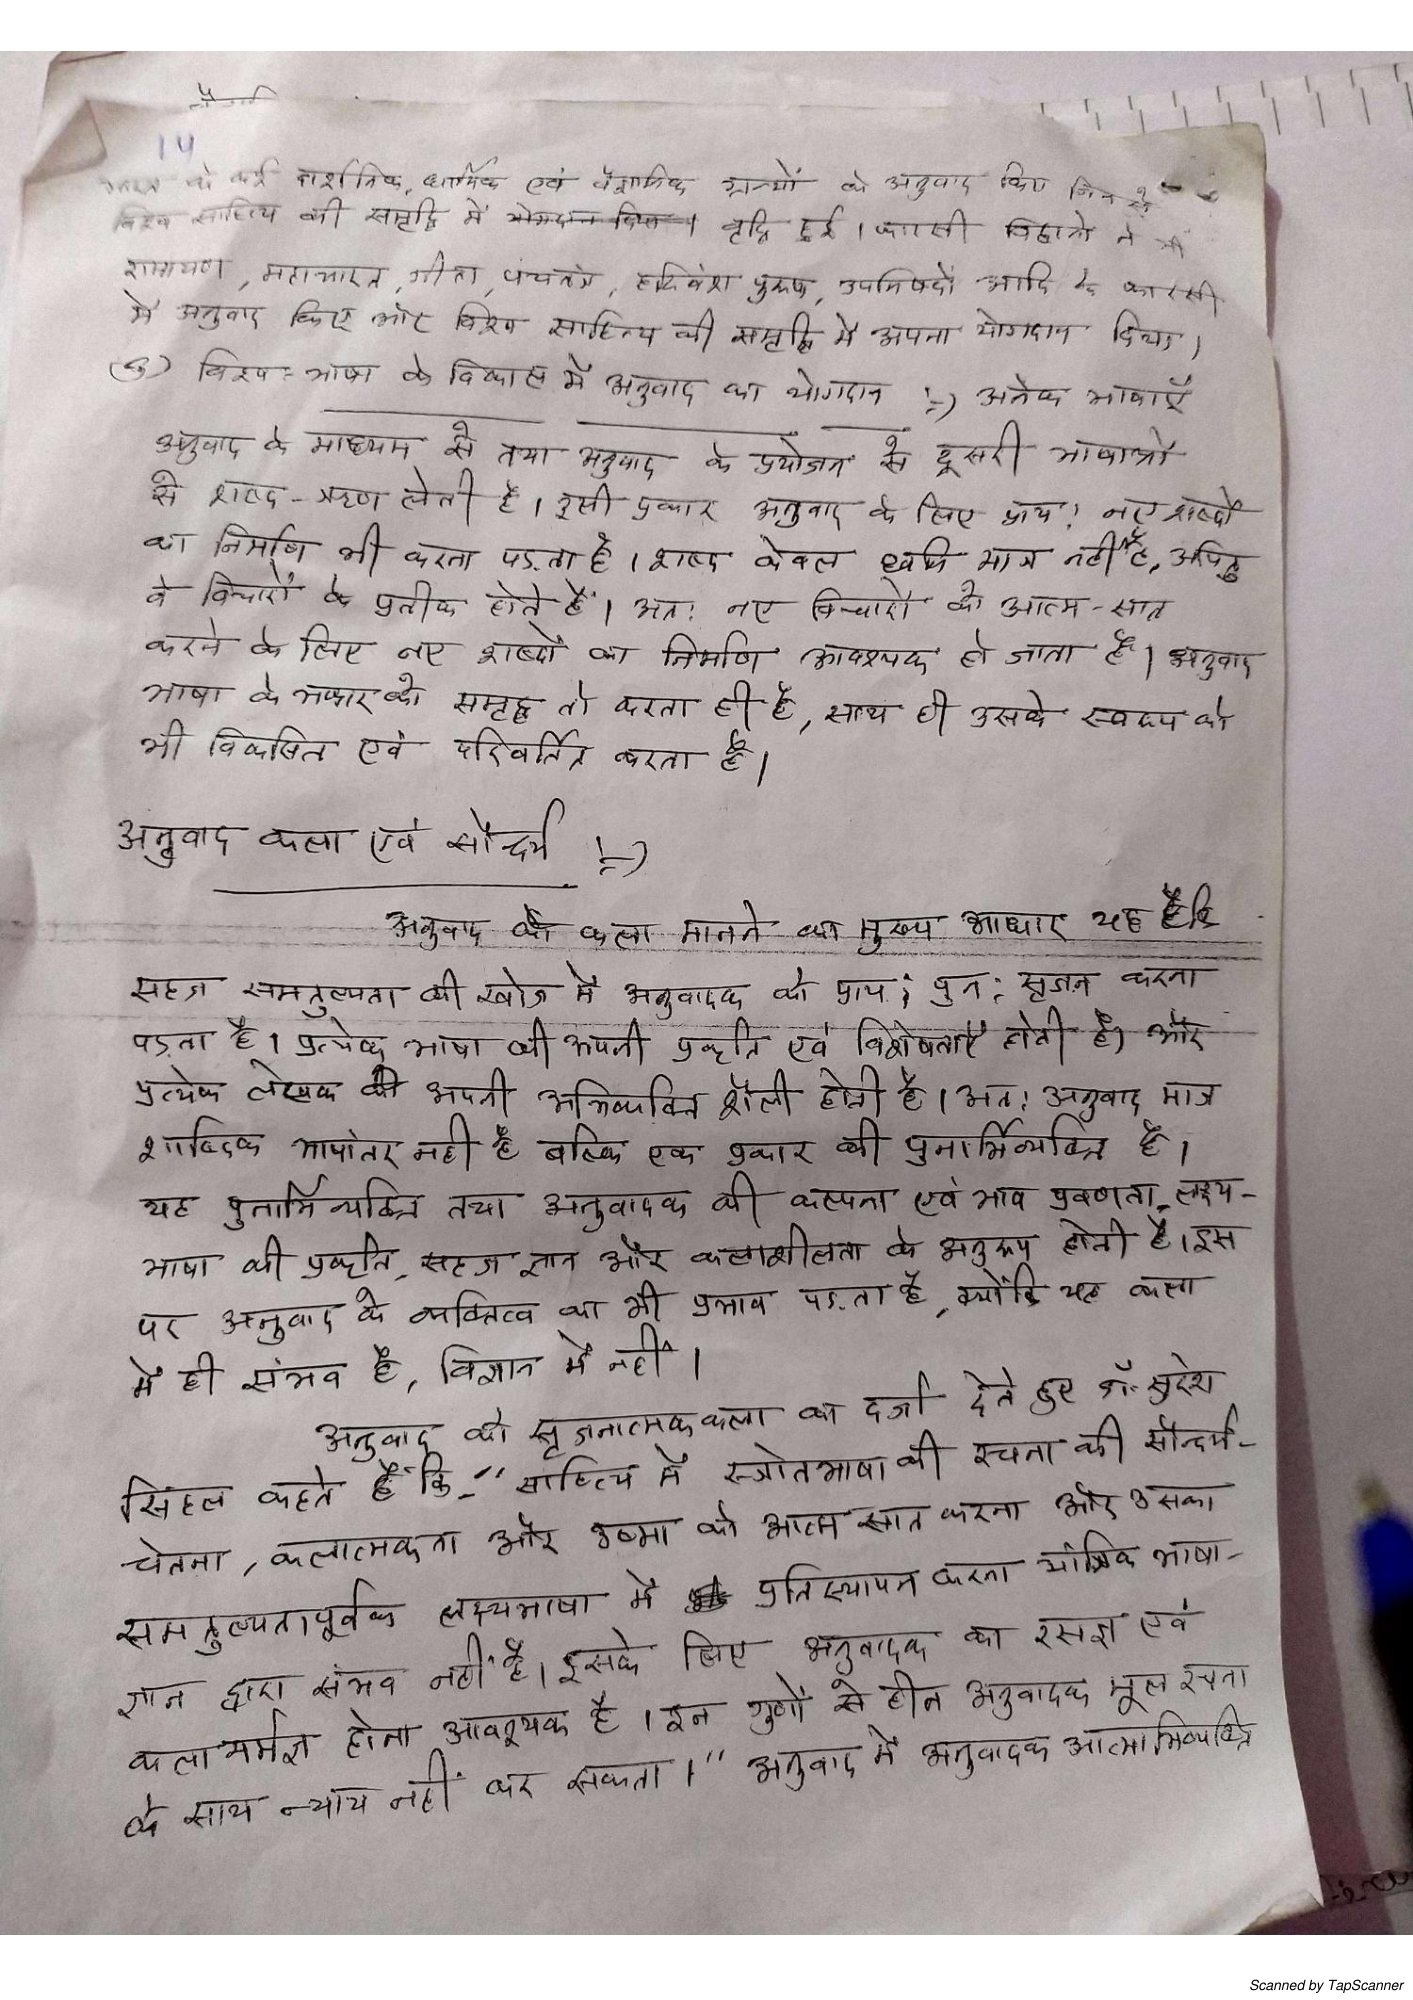 14
के कई दार्शनिक, धार्मिक एवं वैज्ञानिक ग्रन्थों के अनुवाद किए जिनसे
विश्व साहित्य की समृद्धि में योगदान दिया। वृद्धि हुई। फारसी विद्वानों ने भी
रामायण, महाभारत, गीता, पंचतंत्र, हरिवंश पुराण, उपनिषदों आदि के फारसी
में अनुवाद किए और विश्व साहित्य की समृद्धि में अपना योगदान दिया।
विश्व-भाषा के विकास में अनुवाद का योगदान :-) अनेक भाषाएँ
अनुवाद के माध्यम से तथा अनुवाद के प्रयोजन से दूसरी भाषाओं
से शब्द-ऋण लेती है। इसी प्रकार अनुवाद के लिए प्राय: नए शब्दों
का निर्माण भी करना पड़ता है। शब्द केवल ध्वनि मात्र नहीं है, अपितु
वे विचारों के प्रतीक होते हैं। अत: नए विचारों को आत्म-सात
करने के लिए नए शब्दों का निर्माण आवश्यक हो जाता है। अनुवाद
भाषा के भण्डार को समृद्ध तो करता ही है, साथ ही उसके स्वरूप को
भी विकसित एवं परिवर्तित करता है।
अनुवाद कला एवं सौन्दर्य :-)
अनुवाद को कला मानने का मुख्य आधार यह है कि
सहज समतुल्यता की खोज में अनुवादक को प्राय: पुन: सृजन करना
पड़ता है। प्रत्येक भाषा की अपनी प्रकृति एवं विशेषताएँ होती है) और
प्रत्येक लेखक की अपनी अभिव्यक्ति शैली होती है। अत: अनुवाद मात्र
शाब्दिक भाषांतर नही है बल्कि एक प्रकार की पुनार्भिव्यक्ति है।
यह पुनार्भिव्यक्ति तथा अनुवादक की कल्पना एवं भाव प्रवणता, लक्ष्य-
भाषा की प्रकृति, सहज ज्ञान और कलाशीलता के अनुरूप होती है। इस
पर अनुवाद के व्यक्तित्व का भी प्रभाव पड़ता है, क्योंकि यह कला
में ही संभव है, विज्ञान में नहीं।
अनुवाद को सृजनात्मक कला का दर्जा देते हुए डॉ. सुरेश
सिंहल कहते हैं कि - "साहित्य में स्त्रोतभाषा की रचना की सौन्दर्य-
चेतना, कलात्मकता और उष्मा को आत्म सात करना और उसका
समतुल्यतापूर्वक लक्ष्यभाषा में प्रतिस्थापन करना यांत्रिक भाषा-
ज्ञान द्वारा संभव नहीं है। इसके लिए अनुवादक का रसज्ञ एवं
कलामर्मज्ञ होना आवश्यक है। इन गुणों से हीन अनुवादक मूल रचना
के साथ न्याय नहीं कर सकता।" अनुवाद में अनुवादक आत्माभिव्यक्ति
Scanned by TapScanner